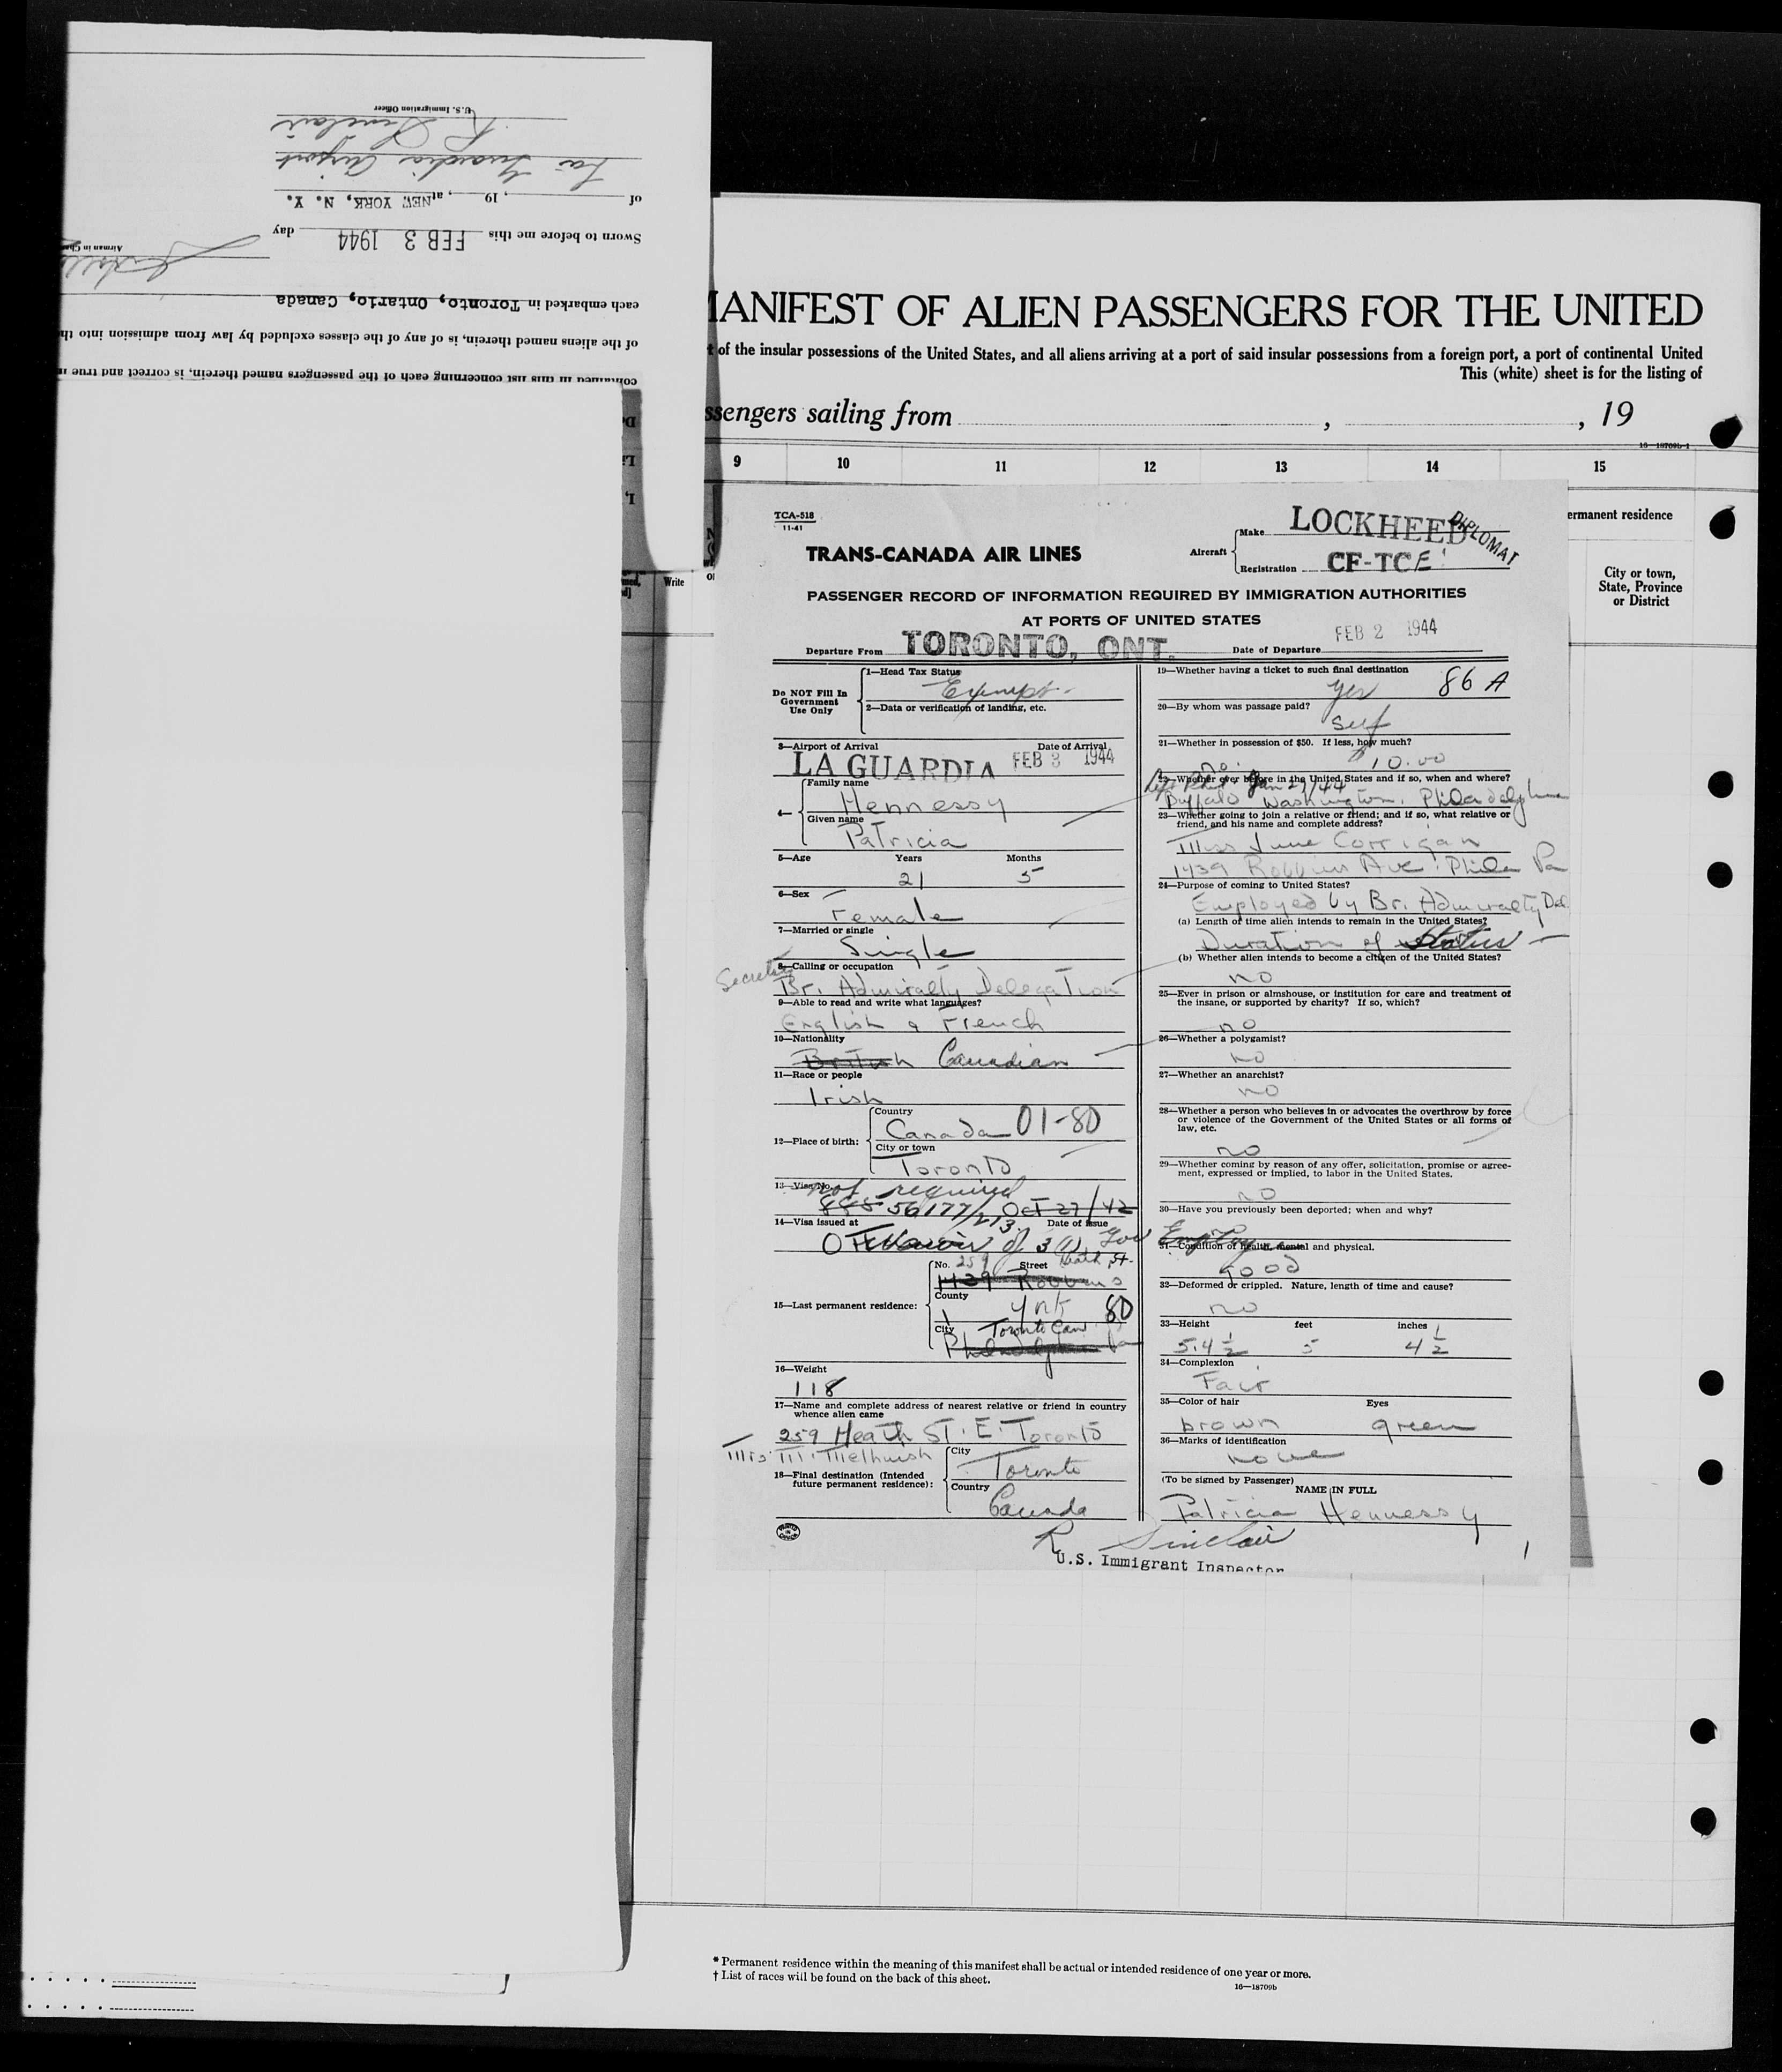 U.S. Immigration Officer
R Sinclair
La Guardia Airport
of , 19 , at NEW YORK, N. Y.
Sworn to before me this FEB 3 1944 day
Airman in
each embarked in Toronto, Ontario, Canada
of the aliens named therein, is of any of the classes excluded by law from admission into
contained in this list concerning each of the passengers named therein, is correct and true
MANIFEST OF ALIEN PASSENGERS FOR THE UNITED
of the insular possessions of the United States, and all aliens arriving at a port of said insular possessions from a foreign port, a port of continental United
This (white) sheet is for the listing of
ssengers sailing from , , 19
16—18709b-1
9 10 11 12 13 14 15
ermanent residence
City or town,
State, Province
or District
Write
TCA-518
11-41
TRANS-CANADA AIR LINES
Aircraft
Make LOCKHEED
DIPLOMAT
Registration CF-TCE
PASSENGER RECORD OF INFORMATION REQUIRED BY IMMIGRATION AUTHORITIES
AT PORTS OF UNITED STATES
Departure From TORONTO, ONT. Date of Departure FEB 2 1944
Do NOT Fill In
Government
Use Only
1—Head Tax Status
Exempt
2—Data or verification of landing, etc.
3—Airport of Arrival Date of Arrival
LA GUARDIA FEB 3 1944
4—
Family name
Hennessy
Given name
Patricia
5—Age Years Months
21 5
6—Sex
Female
7—Married or single
Single
8—Calling or occupation
Br. Admiralty Delegation
9—Able to read and write what languages?
English & French
10—Nationality
British Canadian
11—Race or people
Irish
12—Place of birth:
Country
Canada 01-80
City or town
Toronto
13—Visa No.
not required
56177/213 Oct 27/42
14—Visa issued at Date of Issue
Ottawa 3 (1) Gov
15—Last permanent residence:
No. 259 Street Heath St.
1439 Robbins
County
York 80
City Toronto Can
Philadelphia Pa
16—Weight
118
17—Name and complete address of nearest relative or friend in country
whence alien came
259 Heath ST. E. Toronto
Melhuish
18—Final destination (Intended
future permanent residence):
City
Toronto
Country
Canada
19—Whether having a ticket to such final destination
yes 86 A
20—By whom was passage paid?
Self
21—Whether in possession of $50. If less, how much?
no. $10.00
22—Whether ever before in the United States and if so, when and where?
Jan 29/44
Buffalo Washington, Philadelphia
23—Whether going to join a relative or friend; and if so, what relative or
friend, and his name and complete address?
Miss June Corrigan
1439 Robbins Ave. Phila Pa
24—Purpose of coming to United States?
Employed by Br. Admiralty Del.
(a) Length of time alien intends to remain in the United States?
Duration of Status
(b) Whether alien intends to become a citizen of the United States?
no
25—Ever in prison or almshouse, or institution for care and treatment of
the insane, or supported by charity? If so, which?
no
26—Whether a polygamist?
no
27—Whether an anarchist?
no
28—Whether a person who believes in or advocates the overthrow by force
or violence of the Government of the United States or all forms of
law, etc.
no
29—Whether coming by reason of any offer, solicitation, promise or agree-
ment, expressed or implied, to labor in the United States.
no
30—Have you previously been deported; when and why?
no
31—Condition of health, mental and physical.
Good
32—Deformed or crippled. Nature, length of time and cause?
no
33—Height feet inches
5.4½ 5 4½
34—Complexion
Fair
35—Color of hair Eyes
brown green
36—Marks of identification
none
(To be signed by Passenger)
NAME IN FULL
Patricia Hennessy
R Sinclair
U.S. Immigrant Inspector
* Permanent residence within the meaning of this manifest shall be actual or intended residence of one year or more.
† List of races will be found on the back of this sheet.
16—18709b